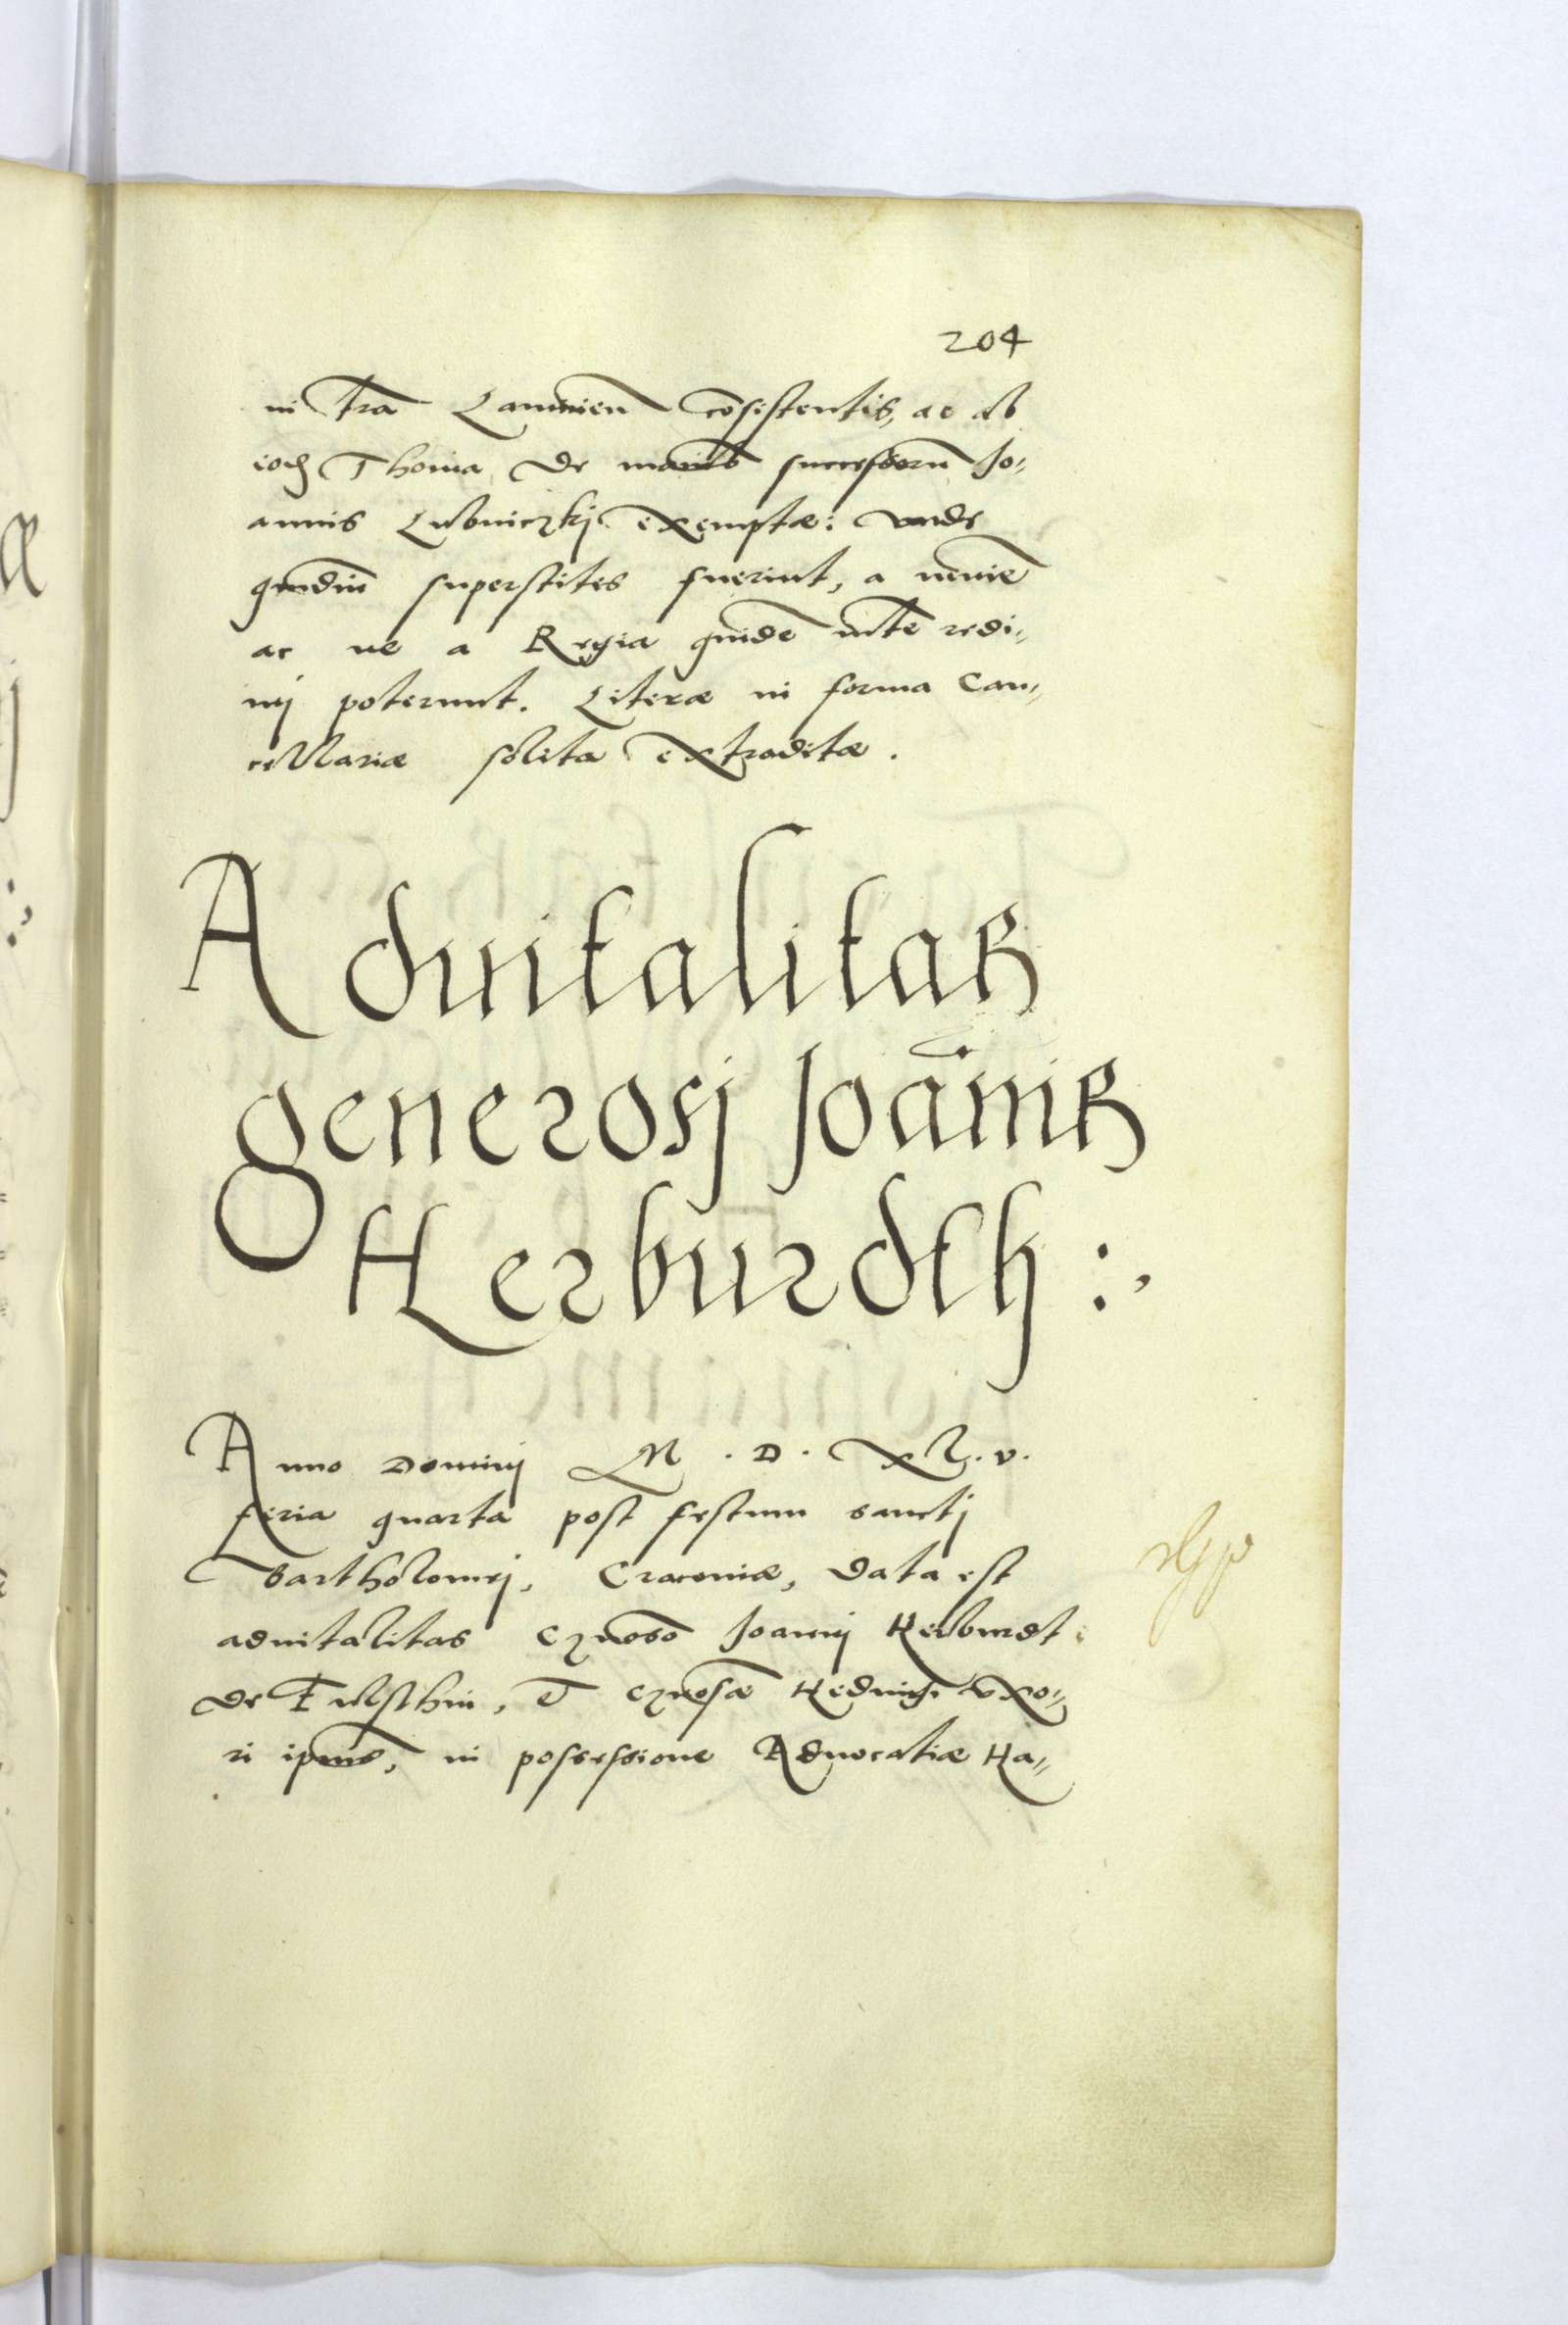 204
in tra Lanciñ cõsistentis, ac ab
eod Thoma de manib successorũ Jo⸗
annis Lubniczkj exemptæ: vnde
quãdiu superstites fuerint, a nemie
ac ne a Regia quidẽ mte redi⸗
mj poterunt. Literæ in forma Can⸗
cellariæ solita extraditæ.
Aduitalitas
generosj Joãnis
Herburdth :,
Anno Dominj M . D . XL . v .
feria quarta post festum sanctj
Bartholomej, Cracoviæ, data est
aduitalitas Gnoso Joannj Herburdt
de Fulsthin, et Gnosæ Heduigi vxo⸗
ri ipius, in possessione Aduocatiæ Ha⸗